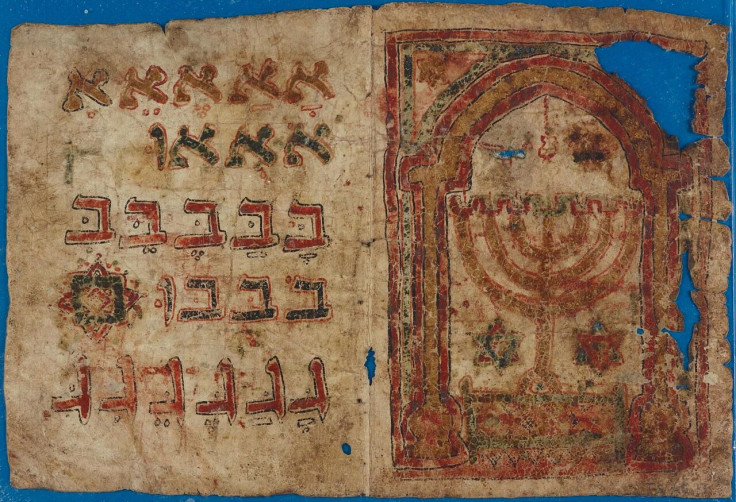 אָ אַ אֶ אֵ אִ
א א או
בָ בַ בֶ בֵ בִ
ב ב בו
ג ג ג ג ג ג